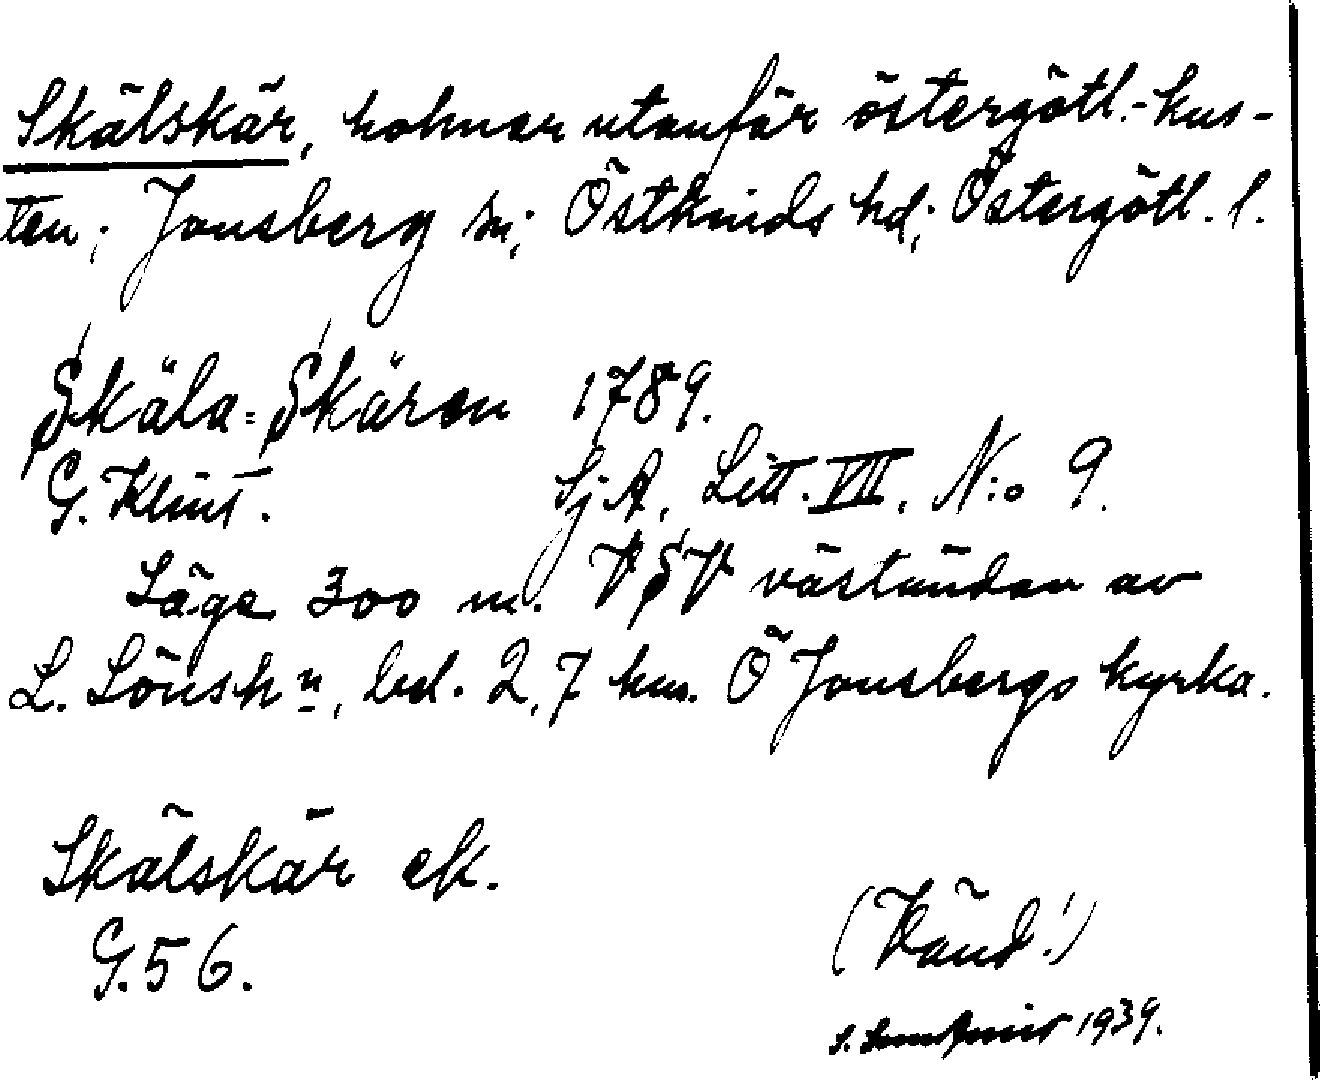 Skälskär, holmar utanför östergötl.-kus-
ten; Jonsberg sn; Östkinds hd; Östergötl. l.
Skäla=Skären 1789.
G. Klint. SjA, Litt. VII. N:o 9.
Läge 300 m. VSV västunden av
L. Lönshn, bel. 2,7 km. Ö Jonsbergs kyrka.
Skälskär ek.
G.56.
(Vänd!)
S. 1939.